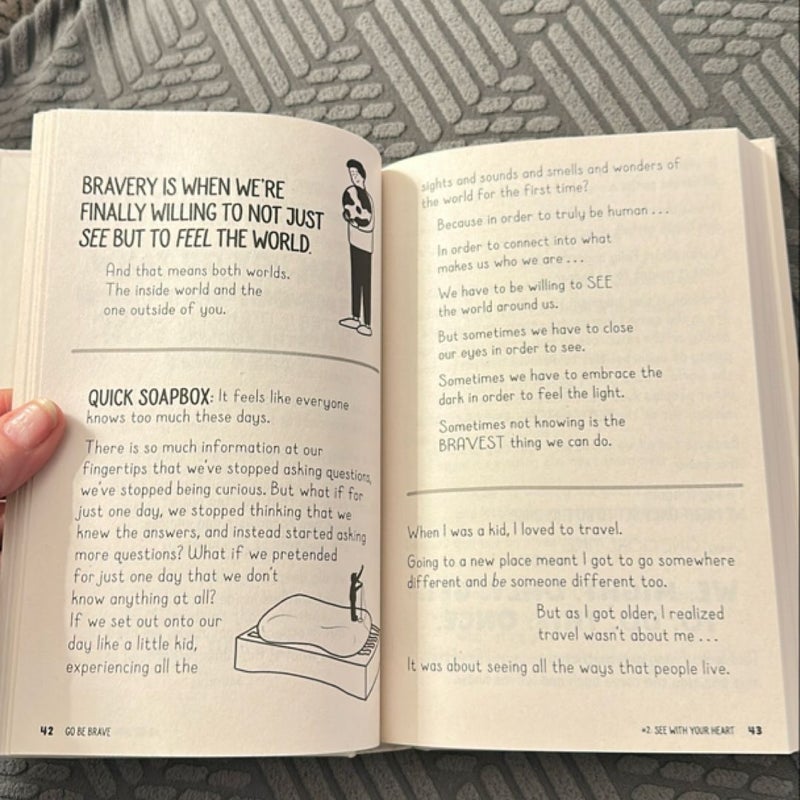 BRAVERY IS WHEN WE'RE
FINALLY WILLING TO NOT JUST
SEE BUT TO FEEL THE WORLD.
And that means both worlds.
The inside world and the
one outside of you.
QUICK SOAPBOX: It feels like everyone
knows too much these days.
There is so much information at our
fingertips that we've stopped asking questions,
we've stopped being curious. But what if for
just one day, we stopped thinking that we
knew the answers, and instead started asking
more questions? What if we pretended
for just one day that we don't
know anything at all?
If we set out onto our
day like a little kid,
experiencing all the
42 GO BE BRAVE
sights and sounds and smells and wonders of
the world for the first time?
Because in order to truly be human ...
In order to connect into what
makes us who we are ...
We have to be willing to SEE
the world around us.
But sometimes we have to close
our eyes in order to see.
Sometimes we have to embrace the
dark in order to feel the light.
Sometimes not knowing is the
BRAVEST thing we can do.
When I was a kid, I loved to travel.
Going to a new place meant I got to go somewhere
different and be someone different too.
But as I got older, I realized
travel wasn't about me ...
It was about seeing all the ways that people live.
#2. SEE WITH YOUR HEART 43